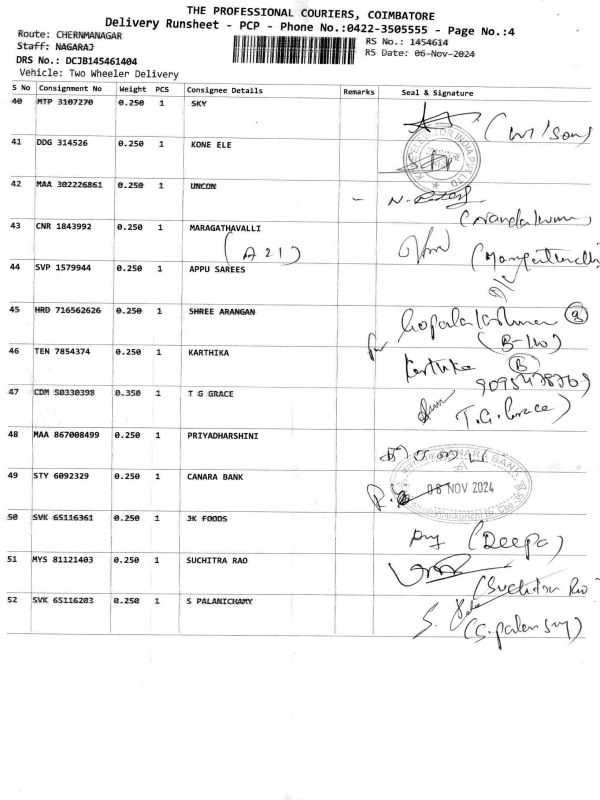 THE PROFESSIONAL COURIERS, COIMBATORE
Delivery Runsheet - PCP - Phone No.:0422-3505555 - Page No.:4
Route: CHERNMANAGAR
Staff: NAGARAJ
DRS No.: DCJB145461404
Vehicle: Two Wheeler Delivery
RS No.: 1454614
RS Date: 06-Nov-2024
S No Consignment No Weight PCS Consignee Details Remarks Seal & Signature
40 MTP 3107270 0.250 1 SKY (Wilson)
41 DDG 314526 0.250 1 KONE ELE
42 MAA 302226861 0.250 1 UNCON -
(Nandakumar)
43 CNR 1843992 0.250 1 MARAGATHAVALLI
(A21)
44 SVP 1579944 0.250 1 APPU SAREES
45 HRD 716562626 0.250 1 SHREE ARANGAN for Gopalakrishnan
(B-140)
46 TEN 7854374 0.250 1 KARTHIKA Karthika B
9095478769
47 CDM 50330398 0.350 1 T G GRACE T.G. Grace)
48 MAA 867008499 0.250 1 PRIYADHARSHINI
49 STY 6092329 0.250 1 CANARA BANK
CANARA BANK
08 NOV 2024
50 SVK 65116361 0.250 1 JK FOODS (Deepa)
51 MYS 81121403 0.250 1 SUCHITRA RAO
(Suchitra Rao)
52 SVK 65116203 0.250 1 S PALANICHAMY